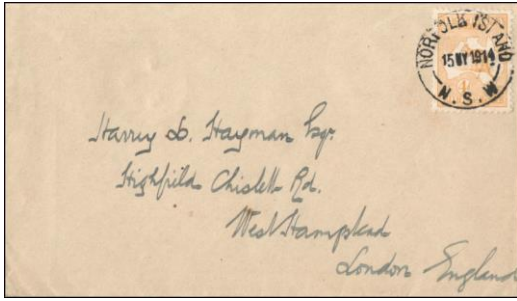 NORFOLK ISLAND
15 MY 1914
N.S.W
Harry S. Hayman Esqr.
Highfield Chislett Rd.
West Hampstead
London England